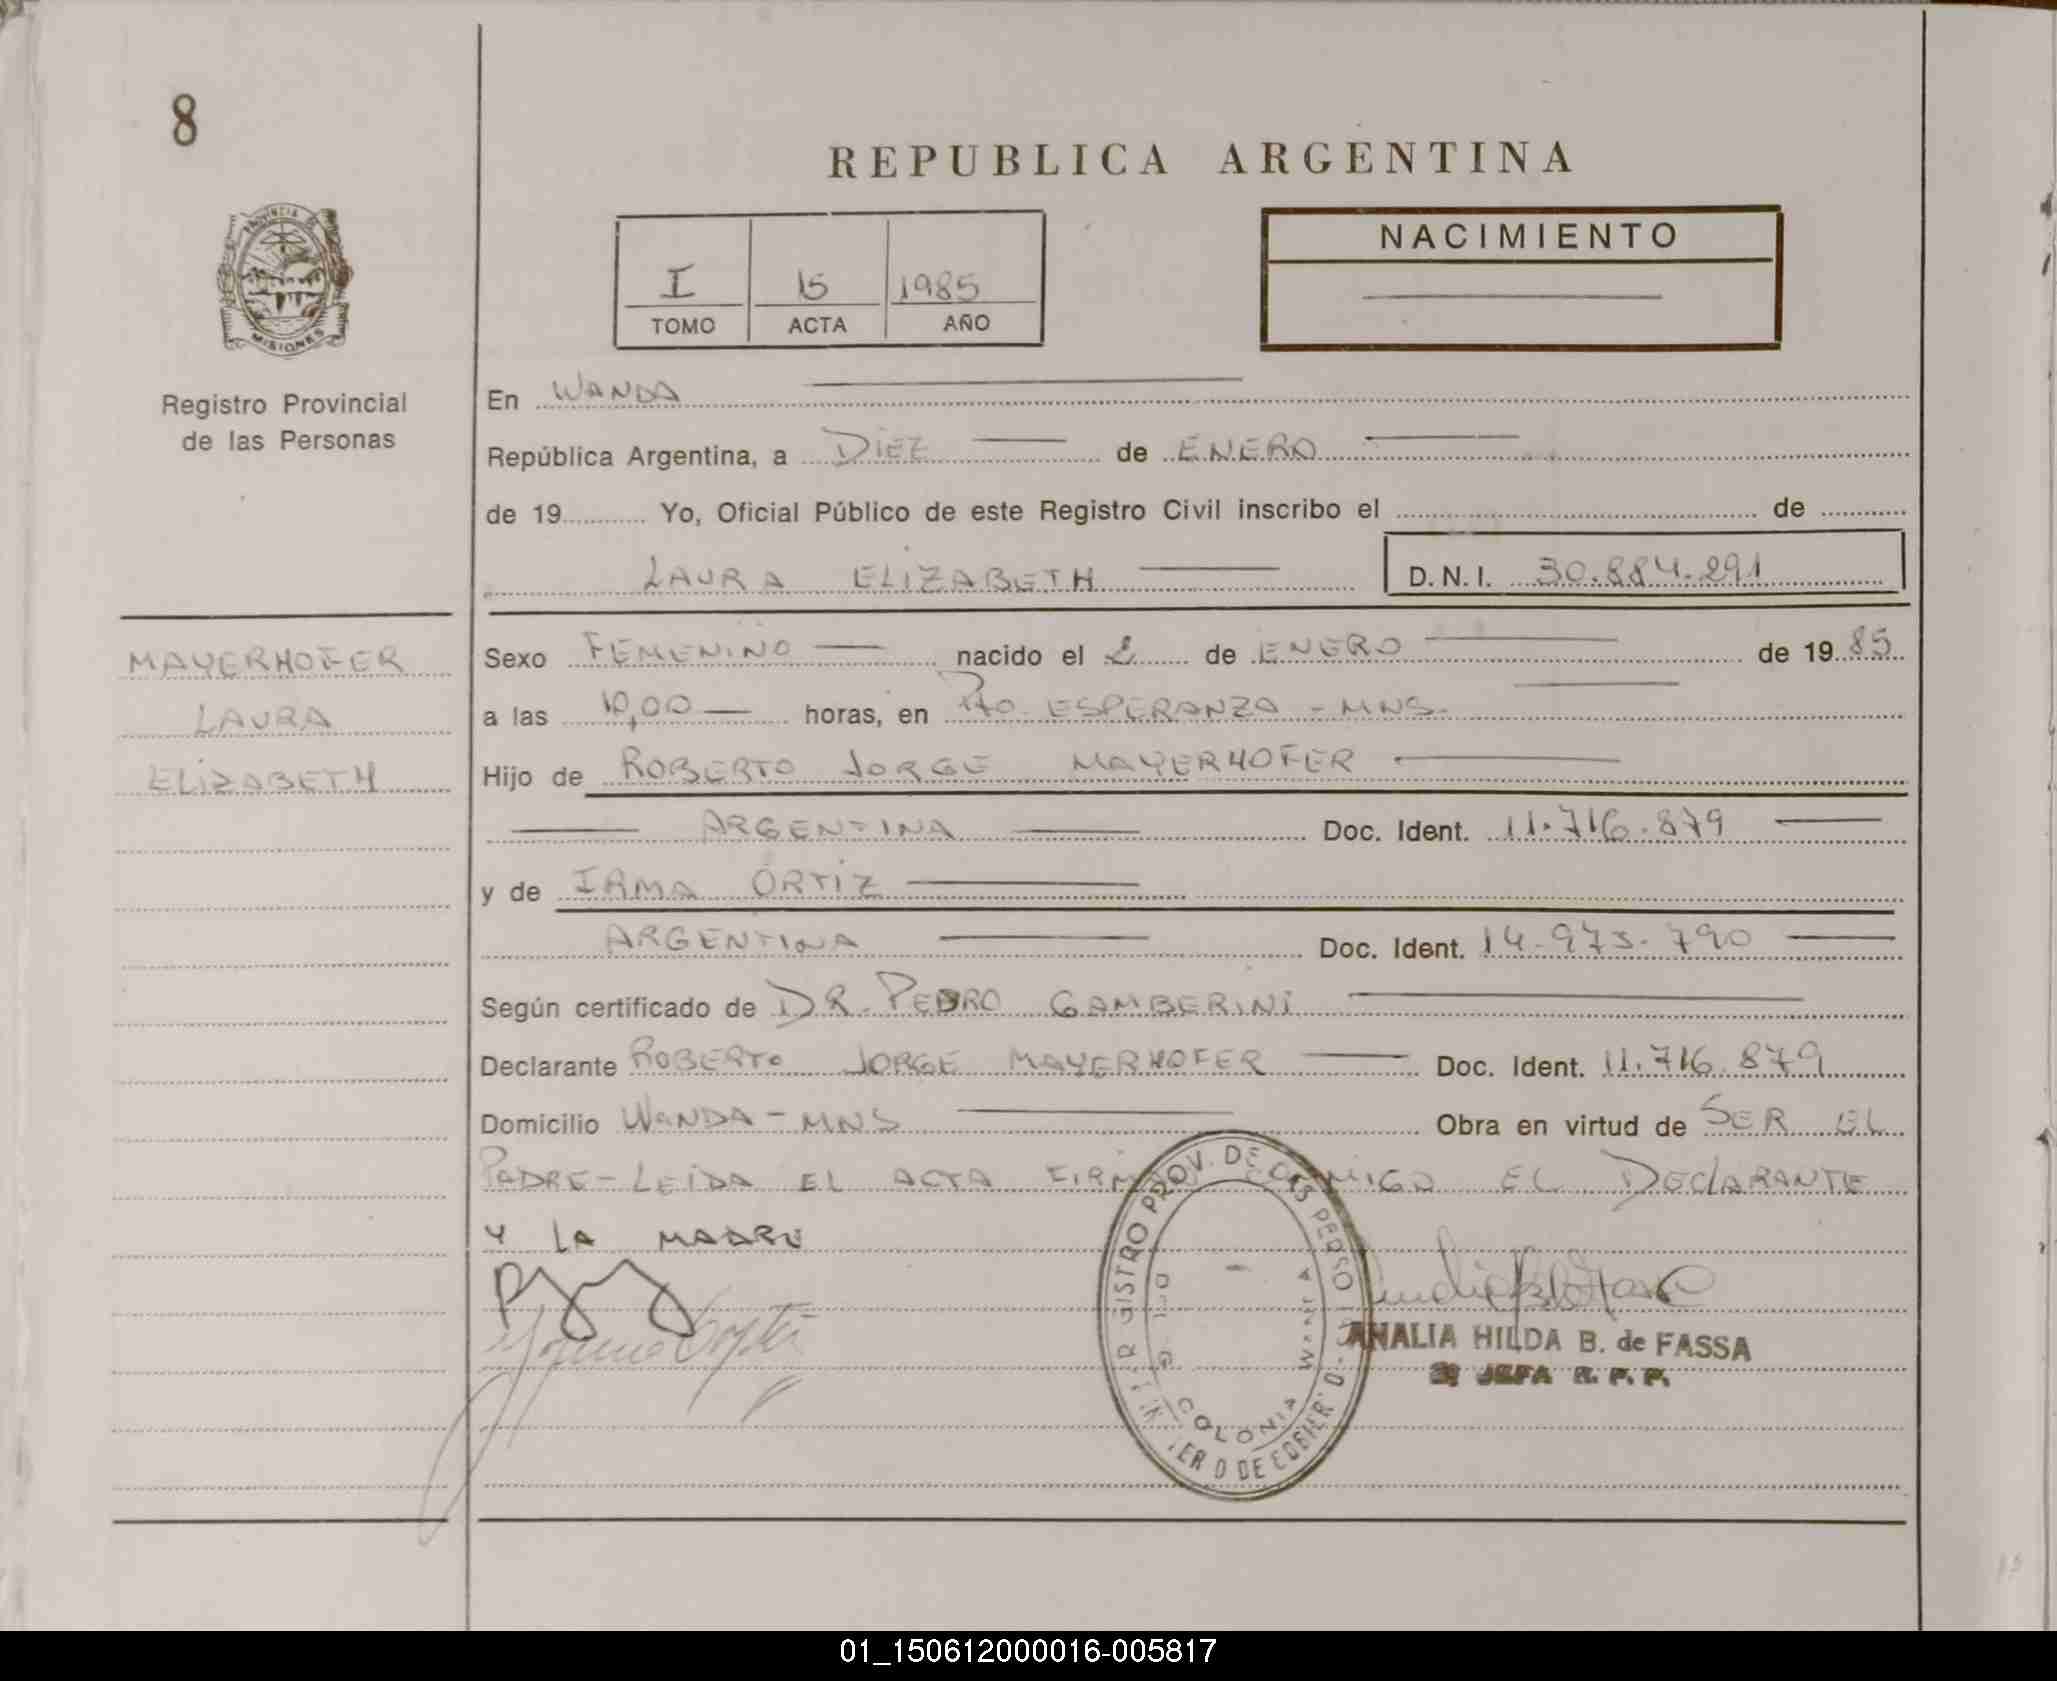 8
REPUBLICA ARGENTINA
PROVINCIA D
MISIONES
Registro Provincial
de las Personas
I 15 1985
TOMO ACTA AÑO
NACIMIENTO
En WANDA
República Argentina, a DIEZ de ENERO
de 19 Yo, Oficial Público de este Registro Civil inscribo el de
LAURA ELIZABETH D.N.I. 30.884.291
MAYERHOFER
LAURA
ELIZABETH
Sexo FEMENINO nacido el 2 de ENERO de 1985
a las 10,00 horas, en Pto. ESPERANZA - MNS.
Hijo de ROBERTO JORGE MAYERHOFER
ARGENTINA Doc. Ident. 11.716.879
y de IRMA ORTIZ
ARGENTINA Doc. Ident. 14.973.790
Según certificado de DR. PEDRO GAMBERINI
Declarante ROBERTO JORGE MAYERHOFER Doc. Ident. 11.716.879
Domicilio WANDA - MNS Obra en virtud de SER EL
PADRE - LEIDA EL ACTA FIRMAN CONMIGO EL DECLARANTE
Y LA MADRE
PROV. DE
COLONIA
WANDA
ANALIA HILDA B. de FASSA
JEFA R. P. P.
01_150612000016-005817